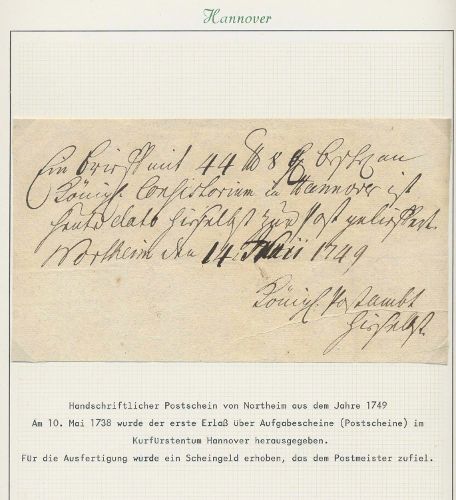 Hannover
Ein brieff mit 44 8 an
Königl. Consistorium in Hannover ist
heute dato hieselbst zur Post geliefert.
Northeim den 14. 1749
Königl. Postambt
hieselbst.
Handschriftlicher Postschein von Northeim aus dem Jahre 1749
Am 10. Mai 1738 wurde der erste Erlaß über Aufgabescheine (Postscheine) im
Kurfürstentum Hannover herausgegeben.
Für die Ausfertigung wurde ein Scheingeld erhoben, das dem Postmeister zufiel.